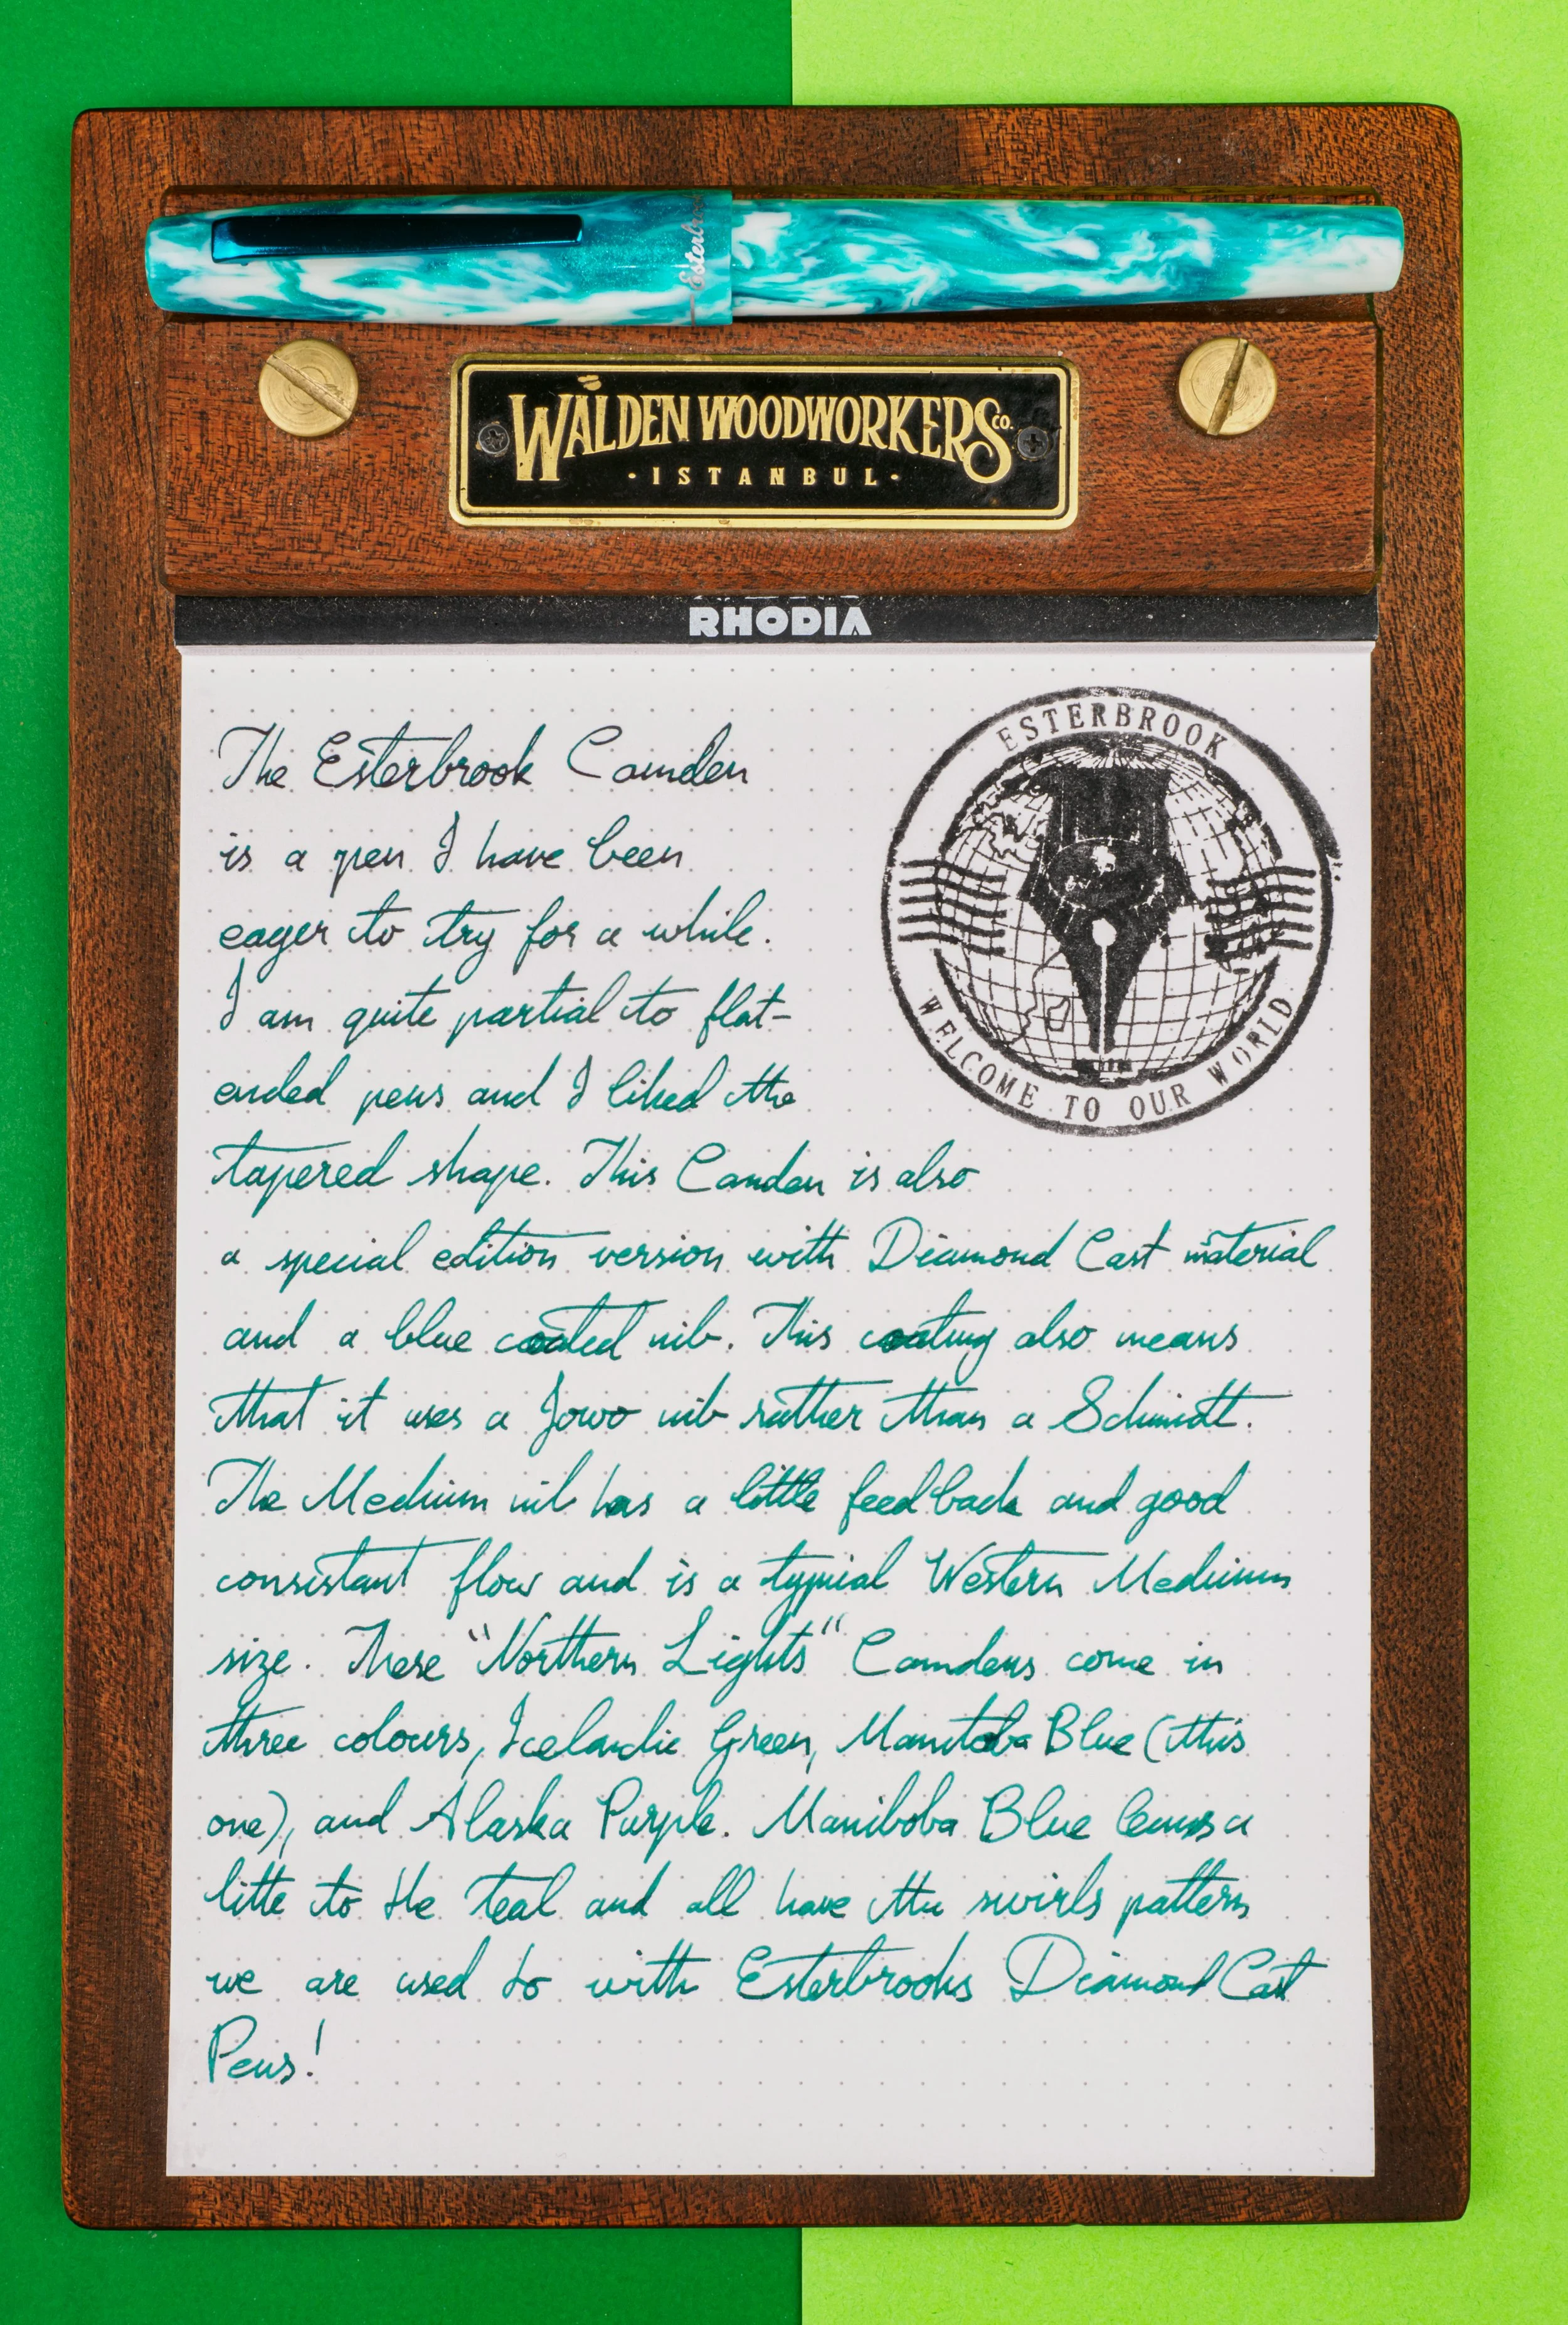 Esterbrook
WALDEN WOODWORKERS CO.
· ISTANBUL ·
RHODIA
ESTERBROOK
WELCOME TO OUR WORLD
The Esterbrook Camden
is a pen I have been
eager to try for a while.
I am quite partial to flat-
ended pens and I liked the
tapered shape. This Camden is also
a special edition version with Diamond Cast material
and a blue coated nib. This coating also means
that it uses a Jowo nib rather than a Schmidt.
The Medium nib has a little feedback and good
consistant flow and is a typical Western Medium
size. These "Northern Lights" Camdens come in
three colours, Icelandic Green, Manitoba Blue (this
one), and Alaska Purple. Maniboba Blue leans a
litte to the teal and all have the swirls pattern
we are used to with Esterbrooks Diamond Cast
Pens!